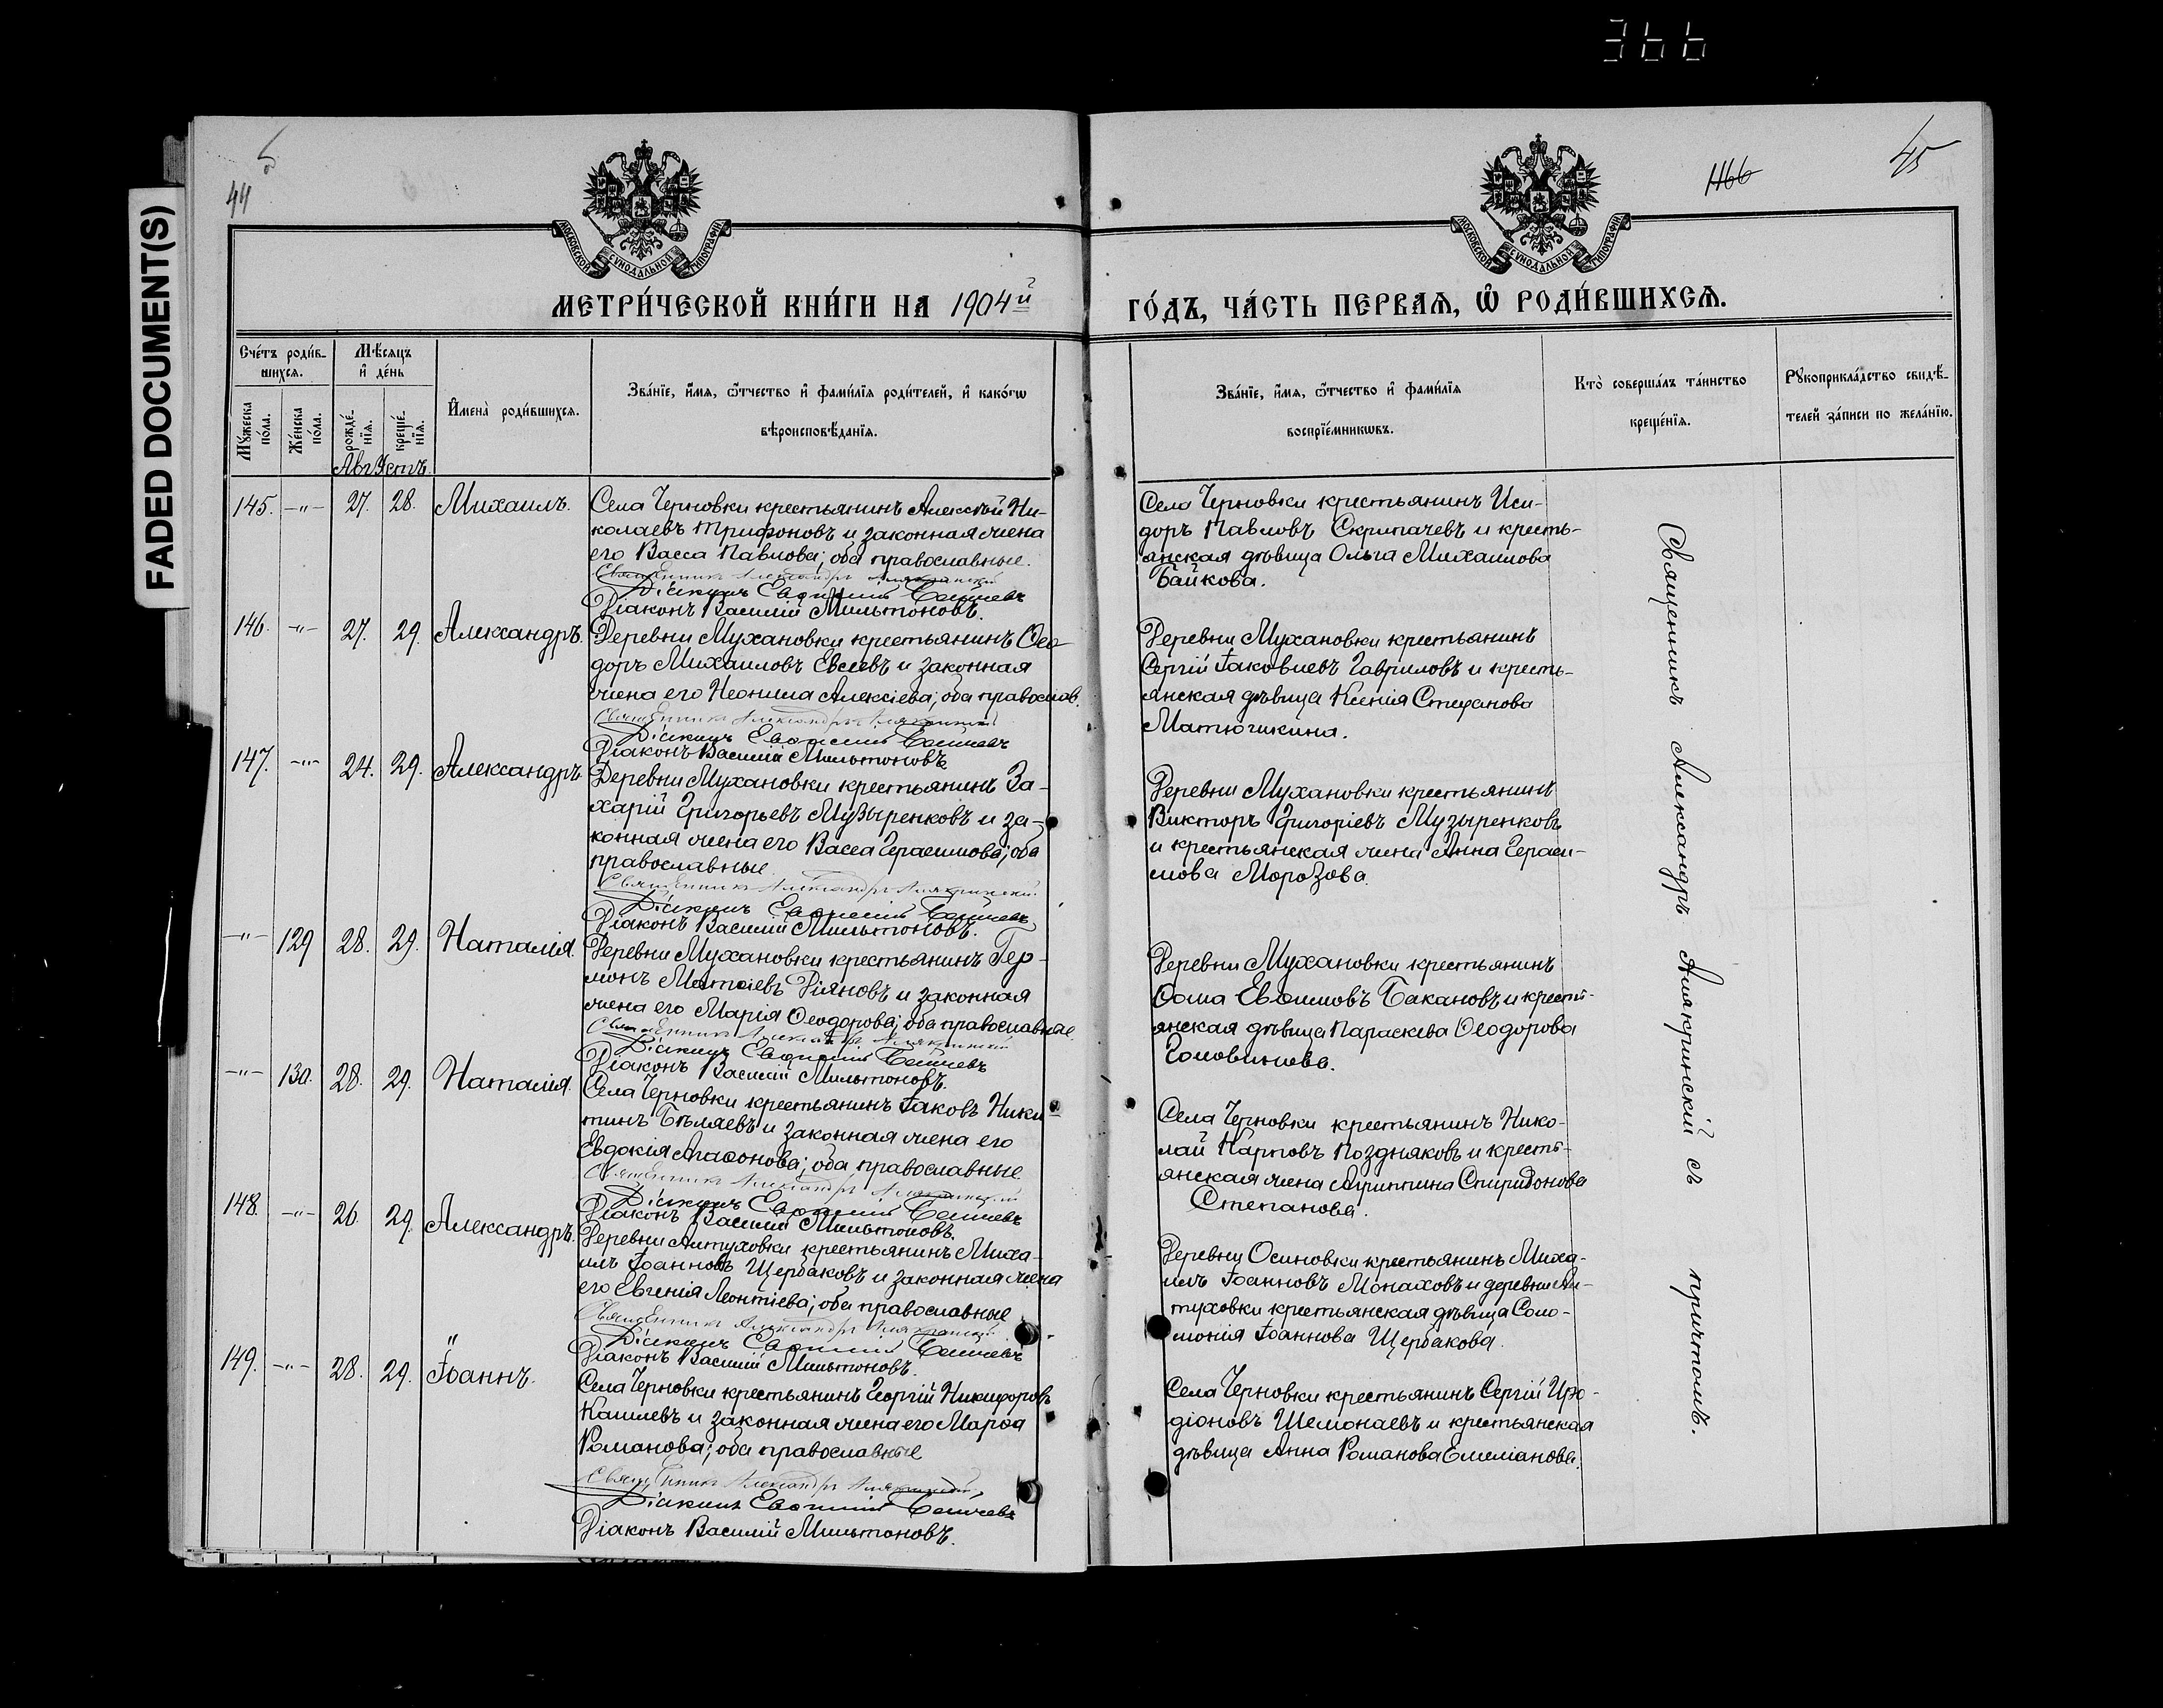 366
FADED DOCUMENT(S)
44
45
МОСКОВСКОЙ СУНОДАЛЬНОЙ ТИПОГРАФІИ
МОСКОВСКОЙ СУНОДАЛЬНОЙ ТИПОГРАФІИ
МЕТРИ́ЧЕСКОЙ КНИ́ГИ НА 1904й
ГО́ДЪ, ЧА́СТЬ ПЕРВАѦ, Ѡ҆ РОДИ́ВШИХСѦ.
Сче́тъ роди́в-
шихся.
Мꙋжеска по́ла.
Же́нска по́ла.
Мѣ́сяцъ
и҆ де́нь
рожде́-нїя.
креще́-нїя.
Августъ.
И҆мена̀ роди́вшихся.
Зва́нїе, и҆́мя, ѻ҆́тчество и҆ фами́лїя роди́телей, и҆ како́гѡ
вѣроисповѣ́данїя.
Зва́нїе, и҆́мя, ѻ҆́тчество и҆ фами́лїя
воспрїе́мникѡвъ.
Кто̀ соверша́лъ та́инство
креще́нїя.
Рꙋкоприкла́дство свидѣ́-
телей за́писи по жела́нїю.
145. -"- 27. 28. Михаилъ.
Села Черновки крестьянинъ Алексѣй Ни-
колаевъ Трифоновъ и законная жена
его Васса Павлова; оба православные.
Священникъ Александръ Алякринскій
Діаконъ Василій Мильтоновъ.
Села Черновки крестьянинъ Иси-
доръ Павловъ Скрипачевъ и кресть-
янская дѣвица Ольга Михаилова
Байкова.
146. -"- 27. 29. Александръ.
Деревни Мухановки крестьянинъ Ѳео-
доръ Михаиловъ Евсеевъ и законная
жена его Неонила Алексіева; оба православ.
Священникъ Александръ Алякринскій
Діаконъ Василій Мильтоновъ.
Деревни Мухановки крестьянинъ
Сергій Іаковлевъ Гавриловъ и кресть-
янская дѣвица Ксенія Стефанова
Матюшкина.
147. -"- 24. 29. Александръ.
Деревни Мухановки крестьянинъ За-
харій Григорьевъ Музыренковъ и за-
конная жена его Васса Герасимова; оба
православные.
Священникъ Александръ Алякринскій
Діаконъ Василій Мильтоновъ.
Деревни Мухановки крестьянинъ
Викторъ Григоріевъ Музыренковъ
и крестьянская жена Анна Гераси-
мова Морозова.
-"- 129 28. 29. Наталія.
Деревни Мухановки крестьянинъ Гер-
монъ Матѳіевъ Діяновъ и законная
жена его Марія Ѳеодорова; оба православные
Священникъ Александръ Алякринскій
Діаконъ Василій Мильтоновъ.
Деревни Мухановки крестьянинъ
Ѳома Евѳимовъ Бакановъ и кресть-
янская дѣвица Параскева Ѳеодорова
Головинова.
-"- 130. 28. 29. Наталія.
Села Черновки крестьянинъ Іаковъ Ники
тинъ Бѣляевъ и законная жена его
Евдокія Агаѳонова; оба православные
Священникъ Александръ Алякринскій
Діаконъ Василій Мильтоновъ.
Села Черновки крестьянинъ Нико-
лай Карповъ Поздняковъ и кресть-
янская жена Агриппина Спиридонова
Степанова.
148. -"- 26. 29. Александръ.
Деревни Антуховки крестьянинъ Миха-
илъ Іоанновъ Щербаковъ и законная жена
его Евгенія Леонтіева; оба православные
Священникъ Александръ Алякринскій
Діаконъ Василій Мильтоновъ.
Деревни Осиновки крестьянинъ Миха-
илъ Іоанновъ Монаховъ и деревни Ан-
туховки крестьянская дѣвица Соло-
монія Іоаннова Щербакова.
149. -"- 28. 29. Іоаннъ.
Села Черновки крестьянинъ Георгій Никифоровъ
Кашаевъ и законная жена его Марѳа
Романова; оба православные
Священникъ Александръ Алякринскій
Діаконъ Василій Мильтоновъ.
Села Черновки крестьянинъ Сергій Иро-
діоновъ Шемонаевъ и крестьянская
дѣвица Анна Романова Емеліанова.
Священникъ Александръ Алякринскій съ причтомъ.